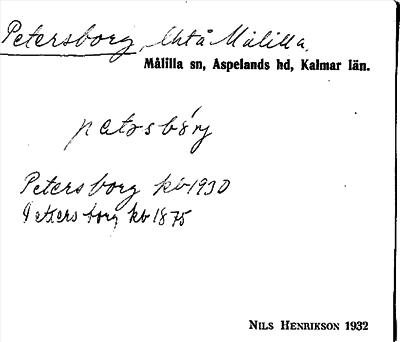 Petersborg, Målilla.
Målilla sn, Aspelands hd, Kalmar län.
Petersborg kb 1930
Petersborg kb 1875
NILS HENRIKSON 1932